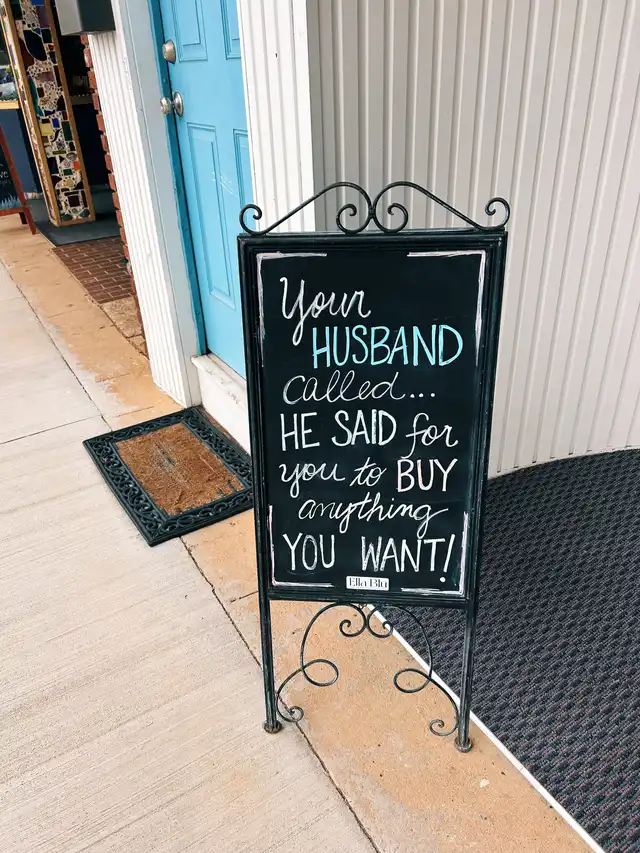 Your
HUSBAND
called...
HE SAID for
you to BUY
anything
YOU WANT!
Ella Blu